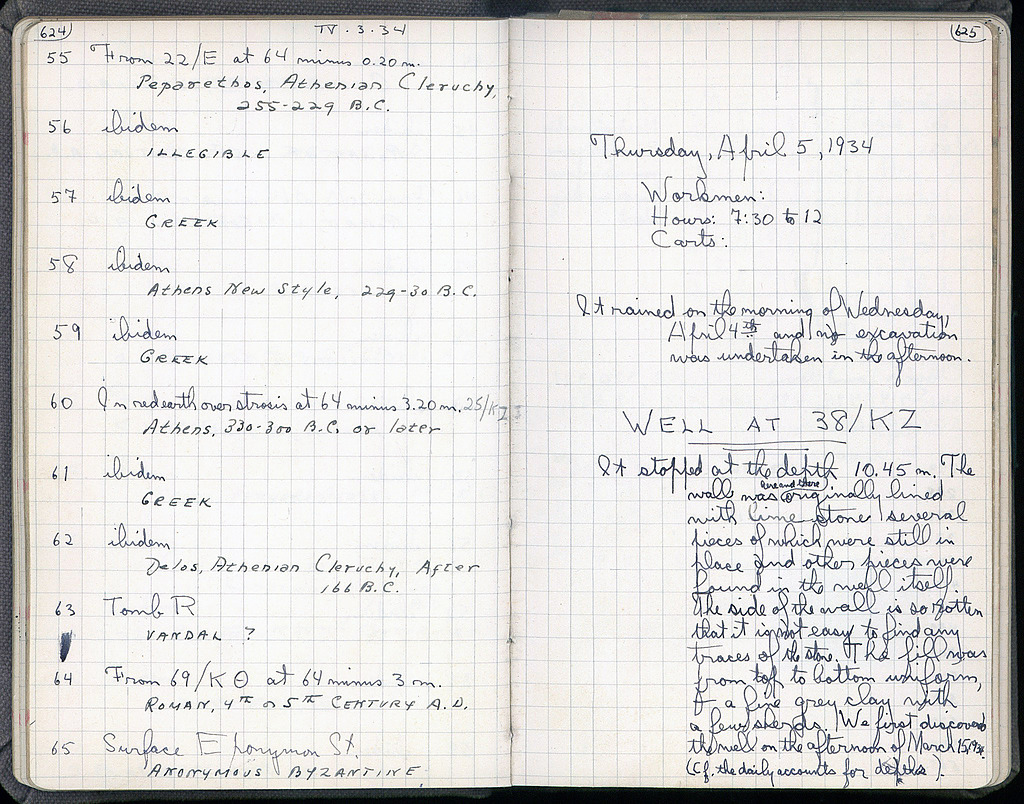 624
IV.3.34
55 From 22/E at 64 minus 0.20 m.
Peparethos, Athenian Cleruchy,
255-229 B.C.
56 ibidem
ILLEGIBLE
57 ibidem
GREEK
58 ibidem
Athens New Style, 229-30 B.C.
59 ibidem
GREEK
60 In red earth over strosis at 64 minus 3.20 m. 25/KZ
Athens, 330-300 B.C. or later
61 ibidem
GREEK
62 ibidem
Delos, Athenian Cleruchy, After
166 B.C.
63 Tomb R
VANDAL ?
64 From 69/KΘ at 64 minus 3 m.
ROMAN, 4TH or 5TH CENTURY A.D.
65 Surface Eponymon St.
ANONYMOUS BYZANTINE
625
Thursday, April 5, 1934
Workmen:
Hours: 7:30 to 12
Carts:
It rained on the morning of Wednesday,
April 4th and no excavation
was undertaken in the afternoon.
WELL AT 38/KZ
It stopped at the depth 10.45 m. The
here and there
wall was originally lined
with lime stone several
pieces of which were still in
place and other pieces were
found in the well itself.
The side of the wall is so rotten
that it is not easy to find any
traces of the stone. The fill was
from top to bottom uniform,
of a fine grey clay with
a few sherds. We first discovered
the well on the afternoon of March 15, 1934
(Cf. the daily accounts for depths).